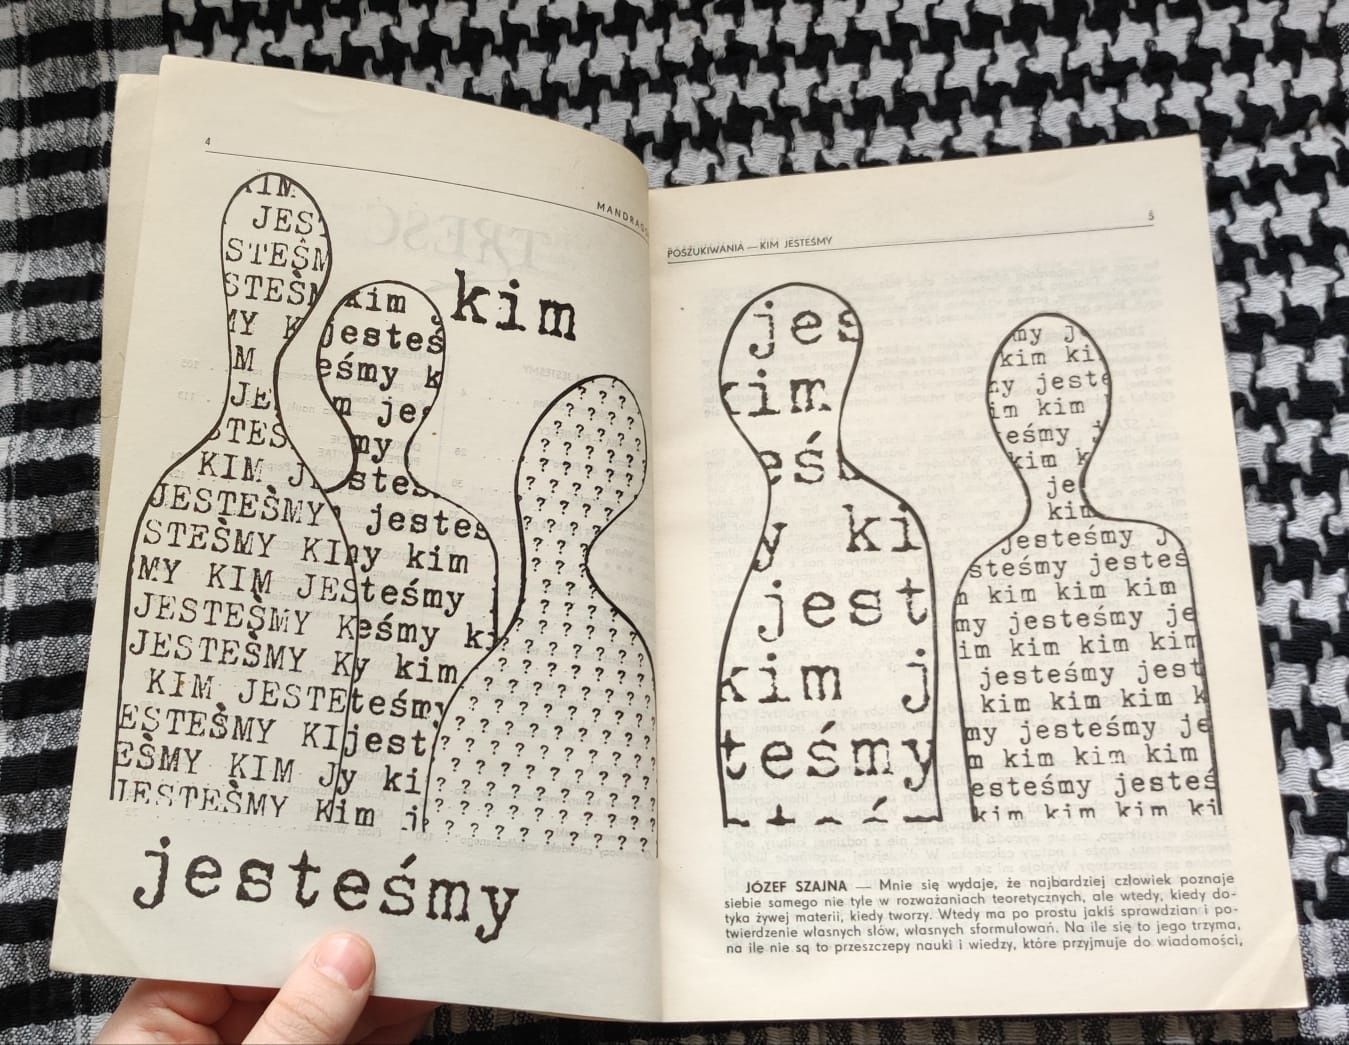 4
MANDRAG
kim
KIM
JES
STEŚM
STEŚM
MY K
M
JE
STEŚ
KIM J
JESTEŚMY
STEŚMY KI
MY KIM JES
JESTEŚMY K
JESTEŚMY K
KIM JESTE
ESTEŚMY KI
EŚMY KIM J
JESTEŚMY K
kim j
jesteś
eśmy k
m jes
my
stes
jestes
my kim
teśmy
eśmy ki
y kim
teśmy
jest
y ki
im j
? ?
? ? ?
? ? ? ?
? ? ? ?
? ? ? ?
? ? ? ?
? ? ?
? ?
? ?
? ? ?
? ? ? ?
? ? ? ? ?
? ? ? ? ? ?
? ? ? ? ? ? ?
? ? ? ? ? ? ?
? ? ? ? ? ? ?
? ? ? ? ? ? ?
jesteśmy
5
POSZUKIWANIA — KIM JESTEŚMY
jes
kim
eśk
y ki
jest
kim j
teśmy
my j
kim ki
my jeste
im kim
eśmy j
kim k
je
kim
jesteśmy j
steśmy jesteś
m kim kim kim
my jesteśmy je
im kim kim kim
jesteśmy jest
kim kim kim k
my jesteśmy je
m kim kim kim
esteśmy jesteś
kim kim kim ki
JÓZEF SZAJNA — Mnie się wydaje, że najbardziej człowiek poznaje
siebie samego nie tyle w rozważaniach teoretycznych, ale wtedy, kiedy do-
tyka żywej materii, kiedy tworzy. Wtedy ma po prostu jakiś sprawdzian i po-
twierdzenie własnych słów, własnych sformułowań. Na ile się to jego trzyma,
na ile nie są to przeszczepy nauki i wiedzy, które przyjmuje do wiadomości,